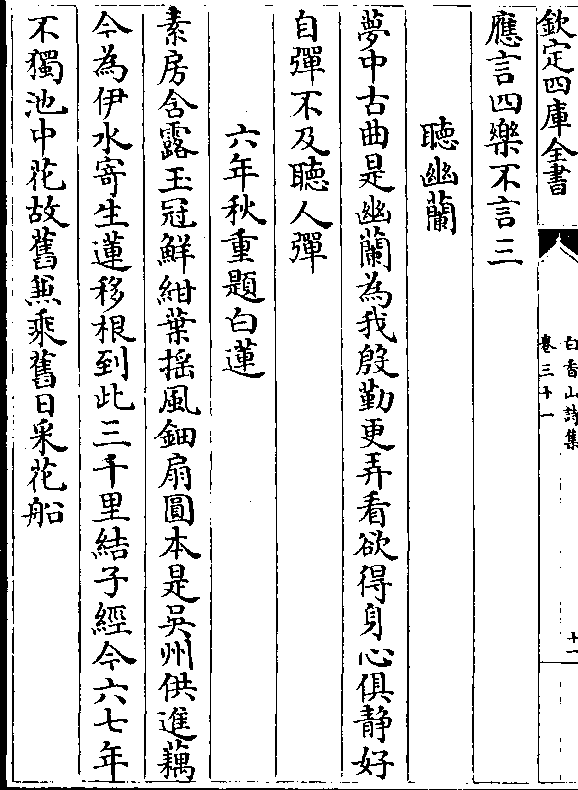 欽定四庫全書
白香山詩集
卷三十一
十二
應言四樂不言三
聽幽蘭
夢中古曲是幽蘭為我殷勤更弄看欲得身心俱靜好
自彈不及聽人彈
六年秋重題白蓮
素房含露玉冠鮮紺葉揺風鈿扇圓本是吳州供進藕
今為伊水寄生蓮移根到此三千里結子經今六七年
不獨池中花故舊兼乘舊日采花船